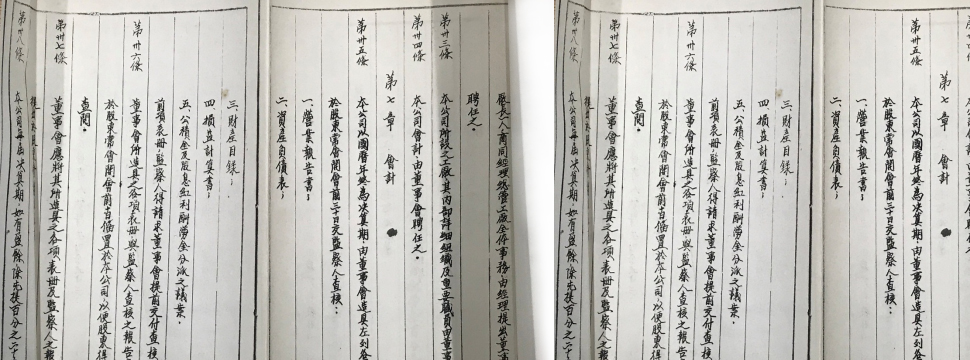 廠長一人商同經理總管工廠全停事務由經理提出董事
聘任之。
第卅三條 本公司所設之工廠其內部詳細組織及重要職員由董事
第卅四條 本公司會計由董事會聘任之。
第七章 會計
第卅五條 本公司以國曆年終為決算期由董事會造具左列各
於股東常會開會前三十日交監察人查核：
一、營業報告書；
二、資產負債表；
三、財產目錄；
四、損益計算書；
五、公積金及股息紅利酬勞金分派之議案。
前項表冊監察人得請求董事會提前交付查核
第卅六條 董事會所造具之各項表冊與監察人查核之報告
於股東常會開會前百備置於本公司以便股東得
查閱。
第卅七條 董事會應將其所造具之各項表冊及監察人之報
第卅八條 本公司每屆決算期如有盈餘除先提百分之二十
第卅五條 本公司以國曆年終為決算期由董事會造具左列各
第七章 會計
於股東常會開會前三十日交監察人查核：
一、營業報告書；
二、資產負債表；
三、財產目錄；
四、損益計算書；
五、公積金及股息紅利酬勞金分派之議案。
前項表冊監察人得請求董事會提前交付查核
第卅六條 董事會所造具之各項表冊與監察人查核之報告
於股東常會開會前百備置於本公司以便股東得
查閱。
第卅七條 董事會應將其所造具之各項表冊及監察人之報
第卅八條 本公司每屆決算期如有盈餘除先提百分之二十